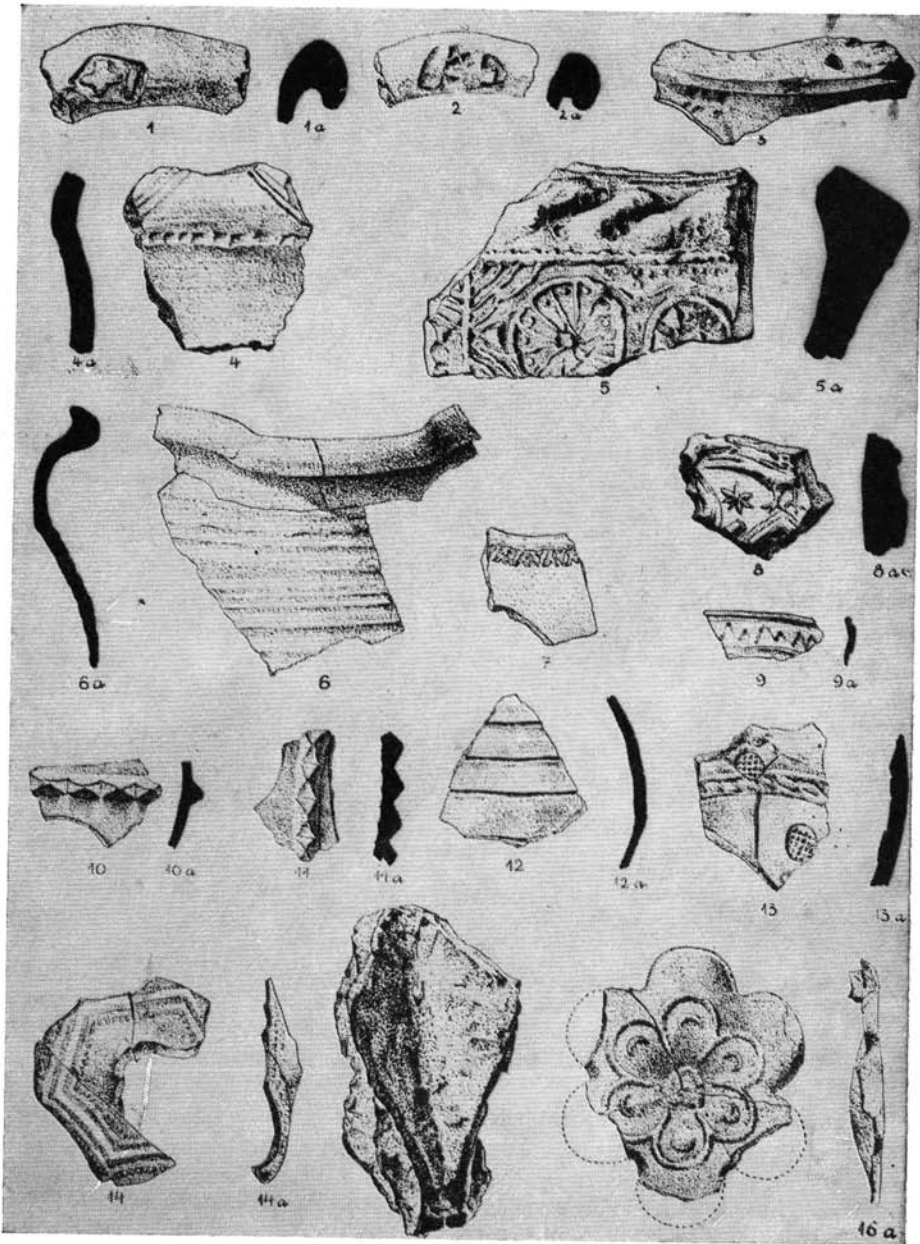 1 1a 2 2a 3
4a 4 5 5a
6a 6 7 8 8a
9 9a
10 10a 11 11a 12 12a 13 13a
14 14a 16a